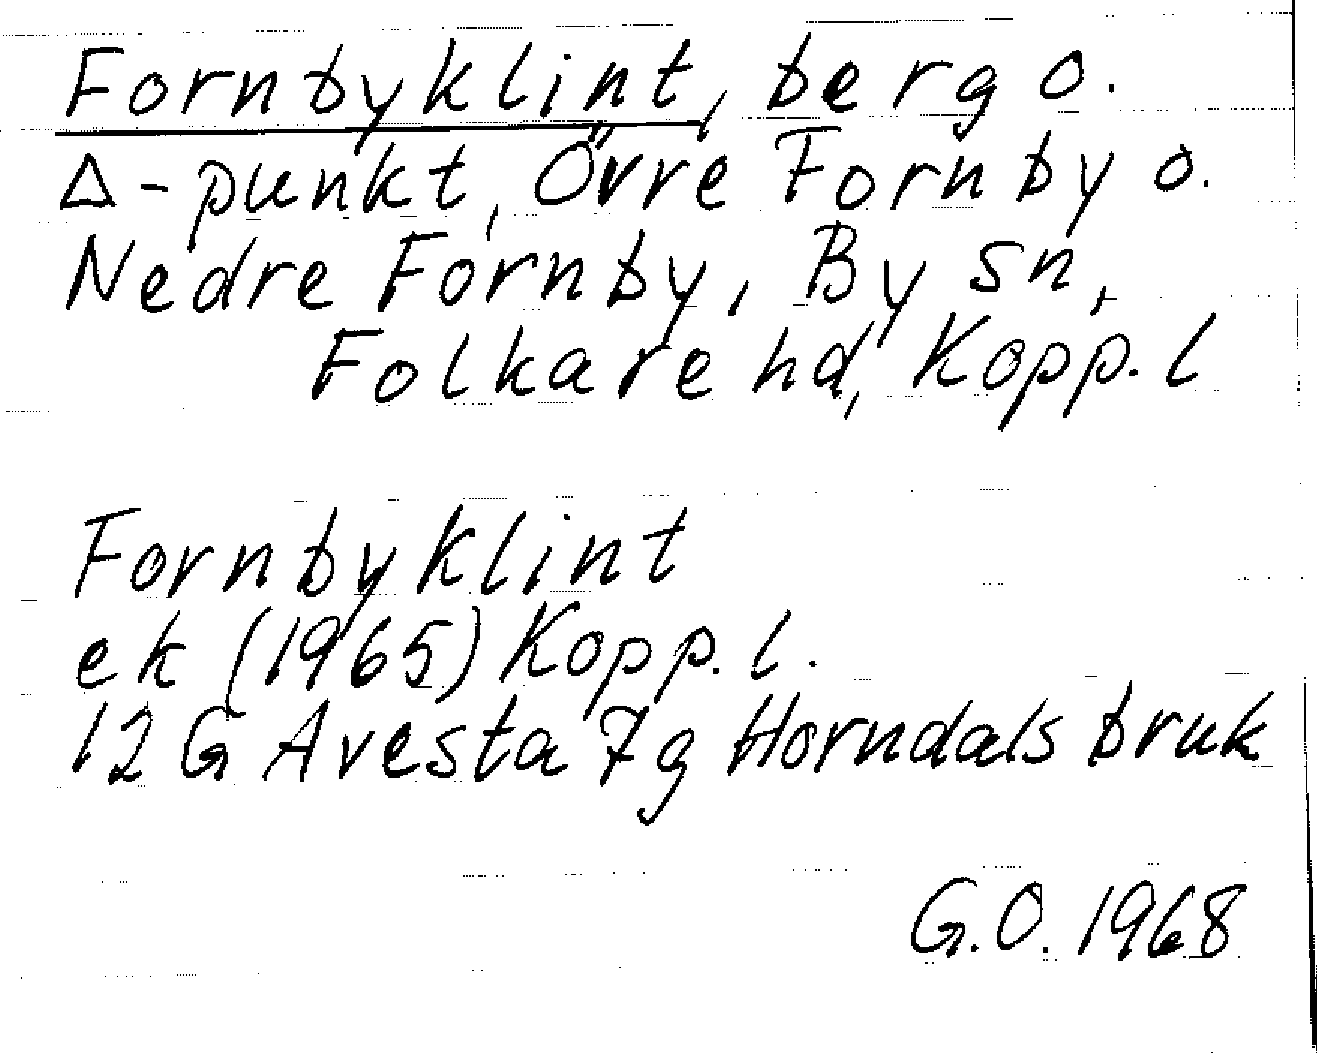 Fornbyklint, berg o.
Δ-punkt, Övre Fornby o.
Nedre Fornby, By sn,
Folkare hd, Kopp. l
Fornbyklint
ek (1965) Kopp. l.
12 G Avesta 7g Horndals bruk
G.O. 1968